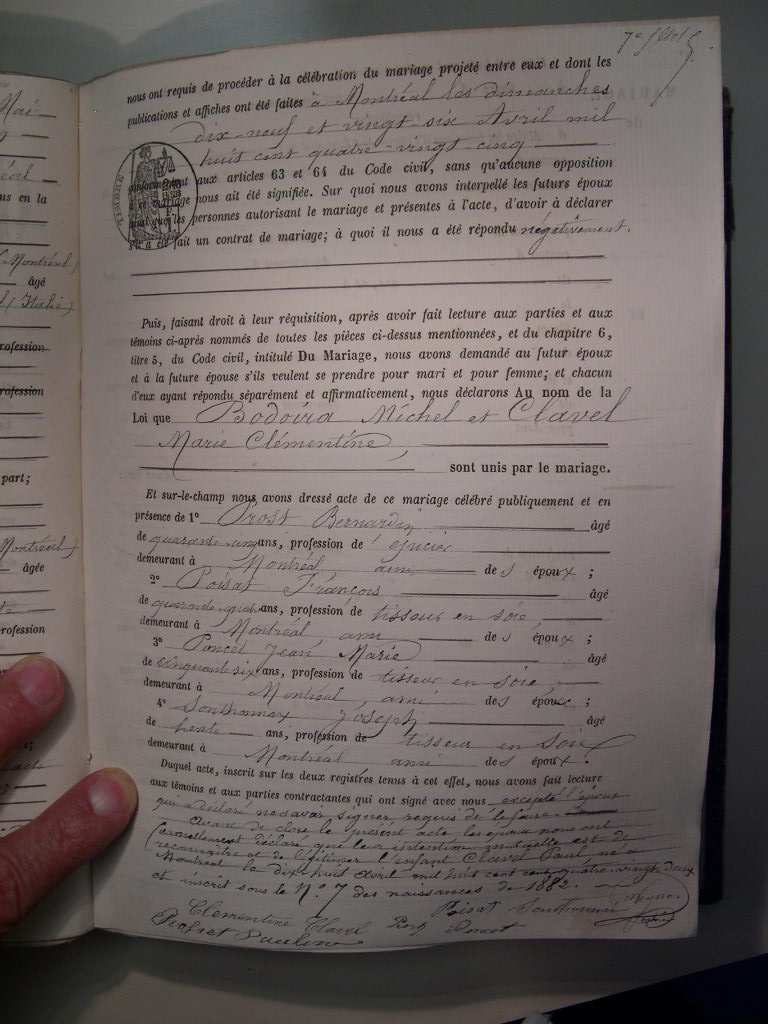 7e
nous ont requis de procéder à la célébration du mariage projeté entre eux et dont les
publications et affiches ont été faites à Montréal les dimanches
dix-neuf et vingt six Avril mil
huit cent quatre-vingt-cinq
TIMBRE
conformément aux articles 63 et 64 du Code civil, sans qu'aucune opposition
à ce mariage nous ait été signifiée. Sur quoi nous avons interpellé les futurs époux
ainsi que les personnes autorisant le mariage et présentes à l'acte, d'avoir à déclarer
s'il a été fait un contrat de mariage; à quoi il nous a été répondu négativement.
Puis, faisant droit à leur réquisition, après avoir fait lecture aux parties et aux
témoins ci-après nommés de toutes les pièces ci-dessus mentionnées, et du chapitre 6,
titre 5, du Code civil, intitulé Du Mariage, nous avons demandé au futur époux
et à la future épouse s'ils veulent se prendre pour mari et pour femme; et chacun
d'eux ayant répondu séparément et affirmativement, nous déclarons Au nom de la
Loi que Bodoira Michel et Clavel
Marie Clémentine,
sont unis par le mariage.
Et sur-le-champ nous avons dressé acte de ce mariage célébré publiquement et en
présence de 1° Prost Bernardin âgé
de quarante ans, profession de épicier
demeurant à Montréal, ami des époux;
2° Poisat François âgé
de quarante ans, profession de tisseur en soie,
demeurant à Montréal ami des époux;
3° Poncet Jean Marie âgé
de cinquante six ans, profession de tisseur en soie,
demeurant à Montréal, ami des époux;
4° Sonthonnax Joseph âgé
de trente ans, profession de tisseur en soie
demeurant à Montréal ami des époux.
Duquel acte, inscrit sur les deux registres tenus à cet effet, nous avons fait lecture
aux témoins et aux parties contractantes qui ont signé avec nous excepté l'époux
qui a déclaré ne savoir signer requis de le faire.
Avant de clore le présent acte les époux nous ont
formellement déclaré que leur intention mutuelle est de
reconnaître et de légitimer l'enfant Clavel Paul né à
Montréal le dix-huit Avril mil huit cent quatre-vingt-deux
et inscrit sous le N° 7 des naissances de 1882.
Clémentine Clavel Poisat Sonthonnax
Pauline Poncet
Maé
ns en la
Montréal
âgé
Italie
profession
profession
part;
Montréal
âgée
profession
acte